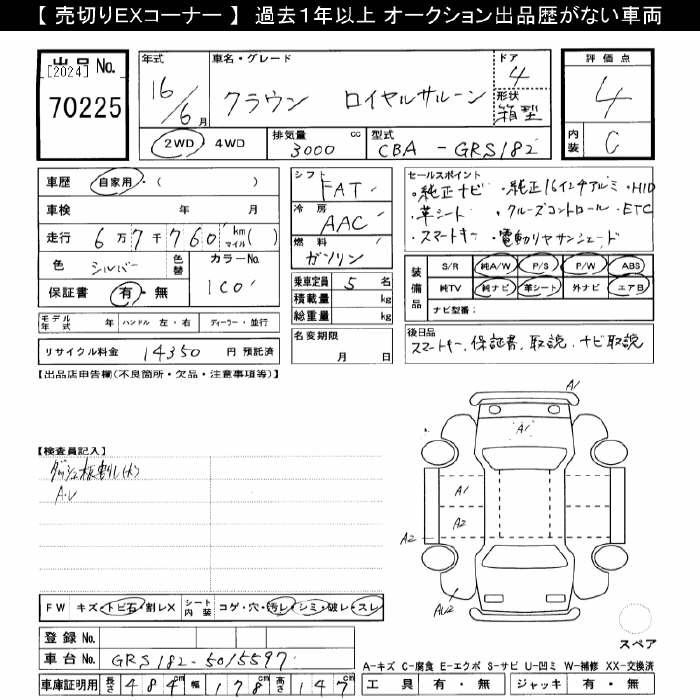 【 売切りEXコーナー 】 過去１年以上 オークション出品歴がない車両
出品 No.
[2024]
70225
年式
16/6月
車名・グレード
クラウン ロイヤルサルーン
ドア
4
形状
箱型
2WD ・ 4WD
排気量
3000 cc
型式
CBA - GRS182
評価点
4
内装
C
車歴 自家用・( )
車検 年 月
走行 6万7千760 km マイル( )
色 シルバー 色替 カラーNo.
1C0
保証書 有・無
シフト
FAT
冷房
AAC
燃料
ガソリン
乗車定員 5 名
積載量 kg
総重量 kg
名変期限
月 日
セールスポイント
・純正ナビ ・純正16インチアルミ ・HID
・革シート ・クルーズコントロール ・ETC
・スマートキー ・電動リヤサンシェード
装備品
S/R 純A/W P/S P/W ABS
純TV 純ナビ 革シート 外ナビ エアB
ナビ型番：
モデル年式 年 ハンドル 左・右 ディーラー・並行
リサイクル料金 14350 円 預託済
後日品
スマートキー、保証書、取説、ナビ取説
【出品店申告欄(不良箇所・欠品・注意事項等)】
【検査員記入】
ダッシュ板割レ(大)
A.U
A1
A1
A1
A2
A2
AU2
FW キズ・トビ石・割レX シート内装 コゲ・穴・汚レ・シミ・破レ・スレ
登録 No.
車台 No. GRS182-5015597
車庫証明用 長さ 484cm 幅 178cm 高さ 147cm
スペア
A-キズ C-腐食 E-エクボ S-サビ U-凹ミ W-補修 XX-交換済
工具 有・無 ジャッキ 有・無